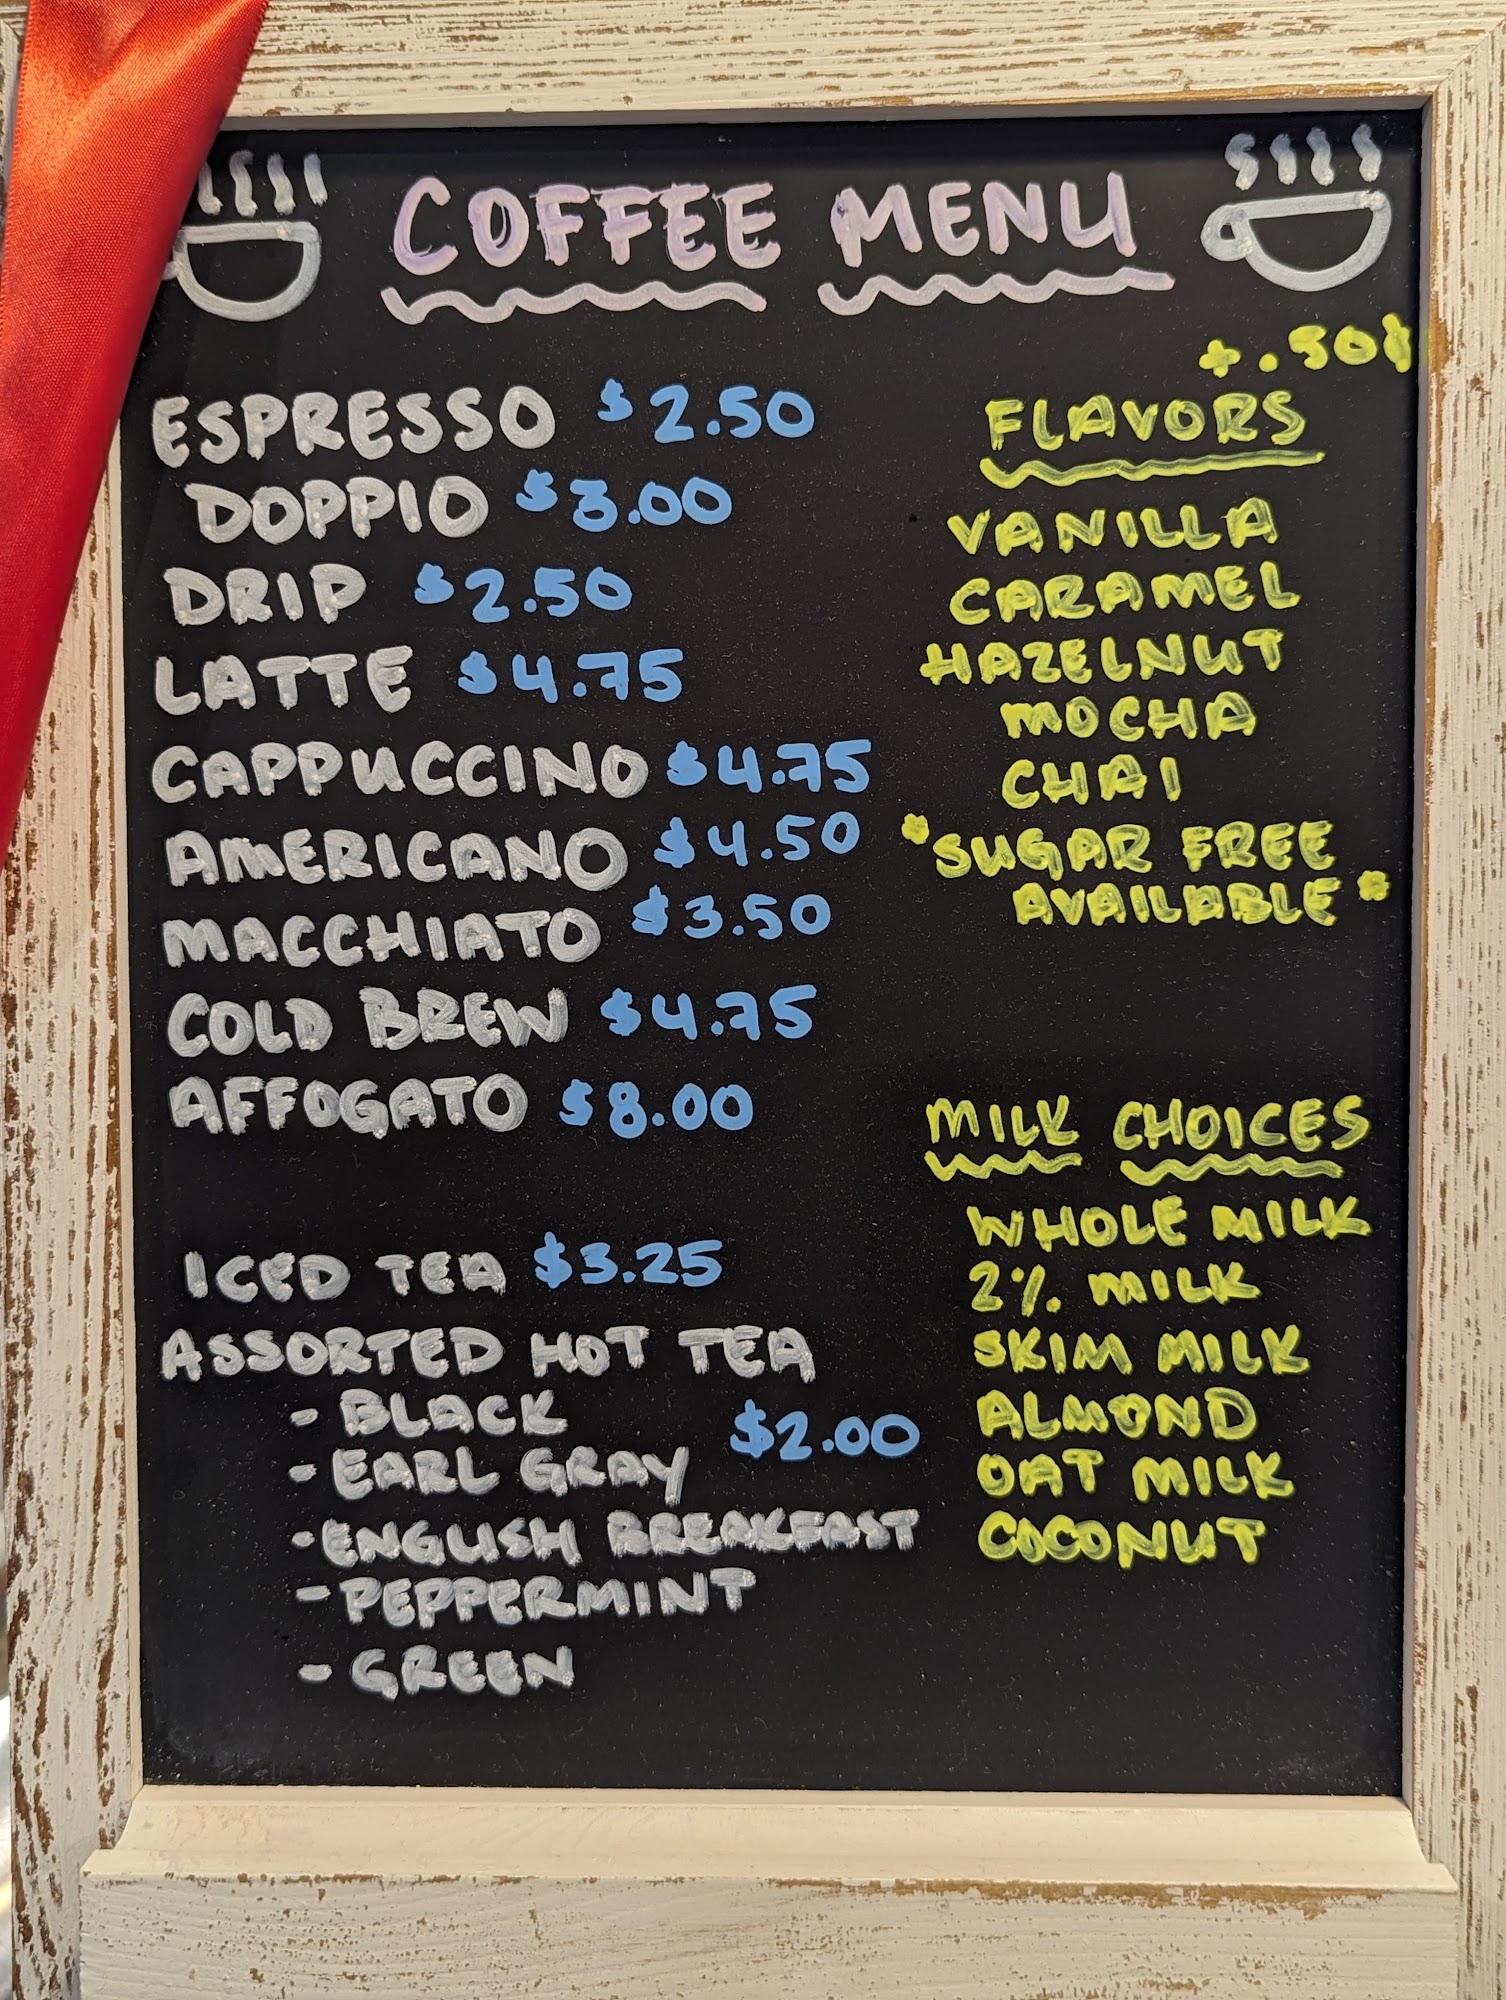 COFFEE MENU
ESPRESSO $2.50
DOPPIO $3.00
DRIP $2.50
LATTE $4.75
CAPPUCCINO $4.75
AMERICANO $4.50
MACCHIATO $3.50
COLD BREW $4.75
AFFOGATO $8.00
ICED TEA $3.25
ASSORTED HOT TEA
- BLACK
$2.00
- EARL GRAY
- ENGLISH BREAKFAST
- PEPPERMINT
- GREEN
+.50¢
FLAVORS
VANILLA
CARAMEL
HAZELNUT
MOCHA
CHAI
*SUGAR FREE
AVAILABLE*
MILK CHOICES
WHOLE MILK
2% MILK
SKIM MILK
ALMOND
OAT MILK
COCONUT